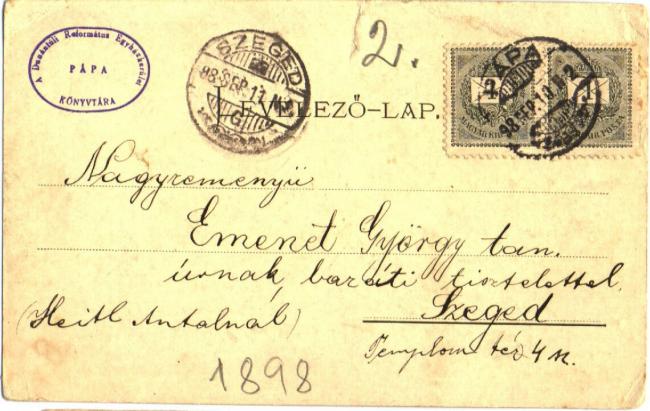 A Dunántúli Református Egyházkerület
PÁPA
KÖNYVTÁRA
SZEGED
98 SEP 11
2.
LEVELEZŐ-LAP.
PÁPA
98 SEP 10
1 1
MAGYAR KIR. POSTA
Nagyreményű
Emenet György tan.
úrnak, baráti tisztelettel
(Heitl Antalnál) Szeged
Templom tér 4 sz.
1898